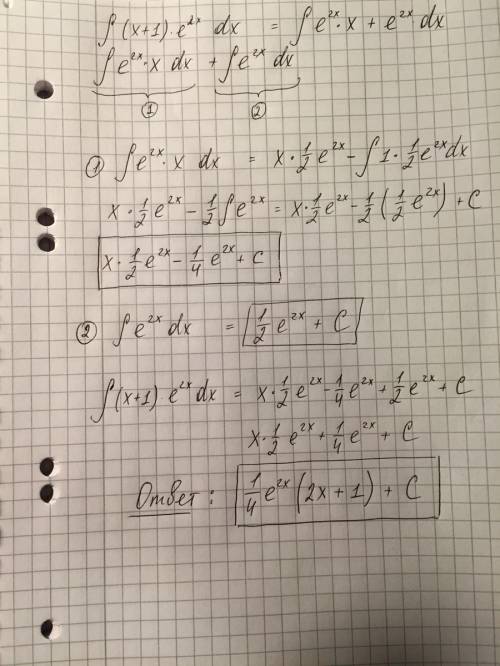 ∫(x+1)·e^{2x} dx = ∫e^{2x}·x + e^{2x} dx
∫e^{2x}·x dx + ∫e^{2x} dx
① ②
① ∫e^{2x}·x dx = x·\frac{1}{2}e^{2x} - ∫1·\frac{1}{2}e^{2x}dx
x·\frac{1}{2}e^{2x} - \frac{1}{2}∫e^{2x} = x·\frac{1}{2}e^{2x} - \frac{1}{2}(\frac{1}{2}e^{2x}) + C
x·\frac{1}{2}e^{2x} - \frac{1}{4}e^{2x} + C
② ∫e^{2x} dx = \frac{1}{2}e^{2x} + C
∫(x+1) e^{2x} dx = x·\frac{1}{2}e^{2x} - \frac{1}{4}e^{2x} + \frac{1}{2}e^{2x} + C
x·\frac{1}{2}e^{2x} + \frac{1}{4}e^{2x} + C
Ответ: \frac{1}{4}e^{2x}(2x+1) + C